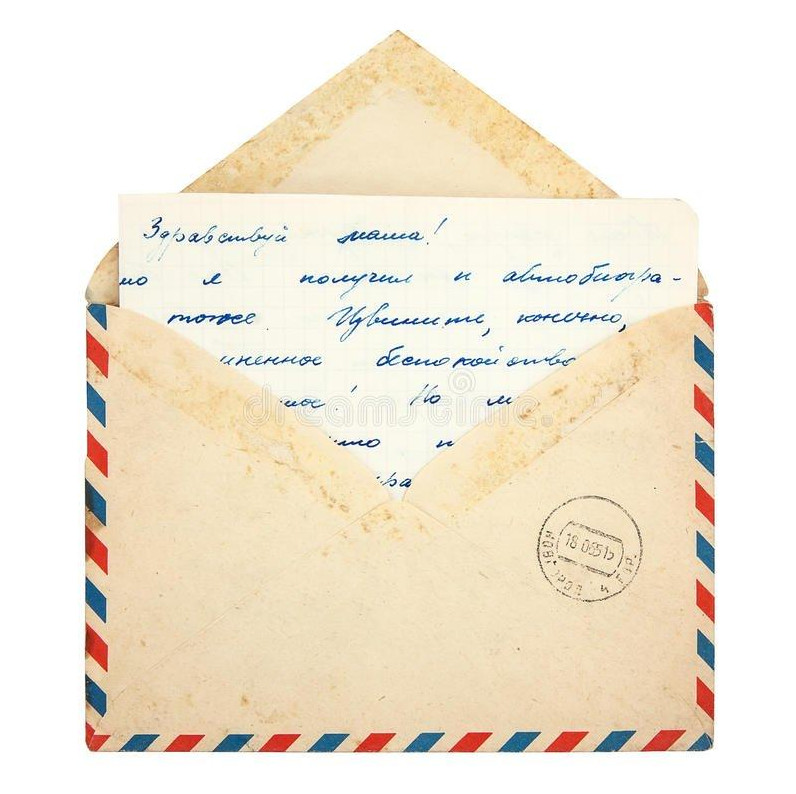 Здравствуй мама!
но я получил и автобиогра-
тоже. Извините, конечно,
иненное беспокойство
мое! На м
но п
ра
dreamstime
18 06 65 15